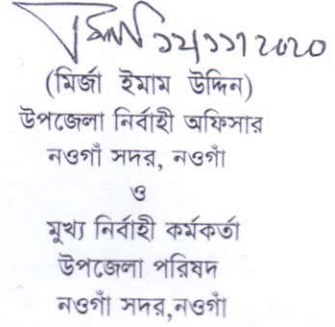 ১২/১১/২০২০
(মির্জা ইমাম উদ্দিন)
উপজেলা নির্বাহী অফিসার
নওগাঁ সদর, নওগাঁ
ও
মুখ্য নির্বাহী কর্মকর্তা
উপজেলা পরিষদ
নওগাঁ সদর,নওগাঁ